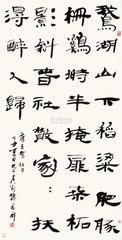 鵝湖山下稻粱肥豚
柵鷄塒半掩扉桒柘
影斜春社散家〻扶
得醉人歸
王駕